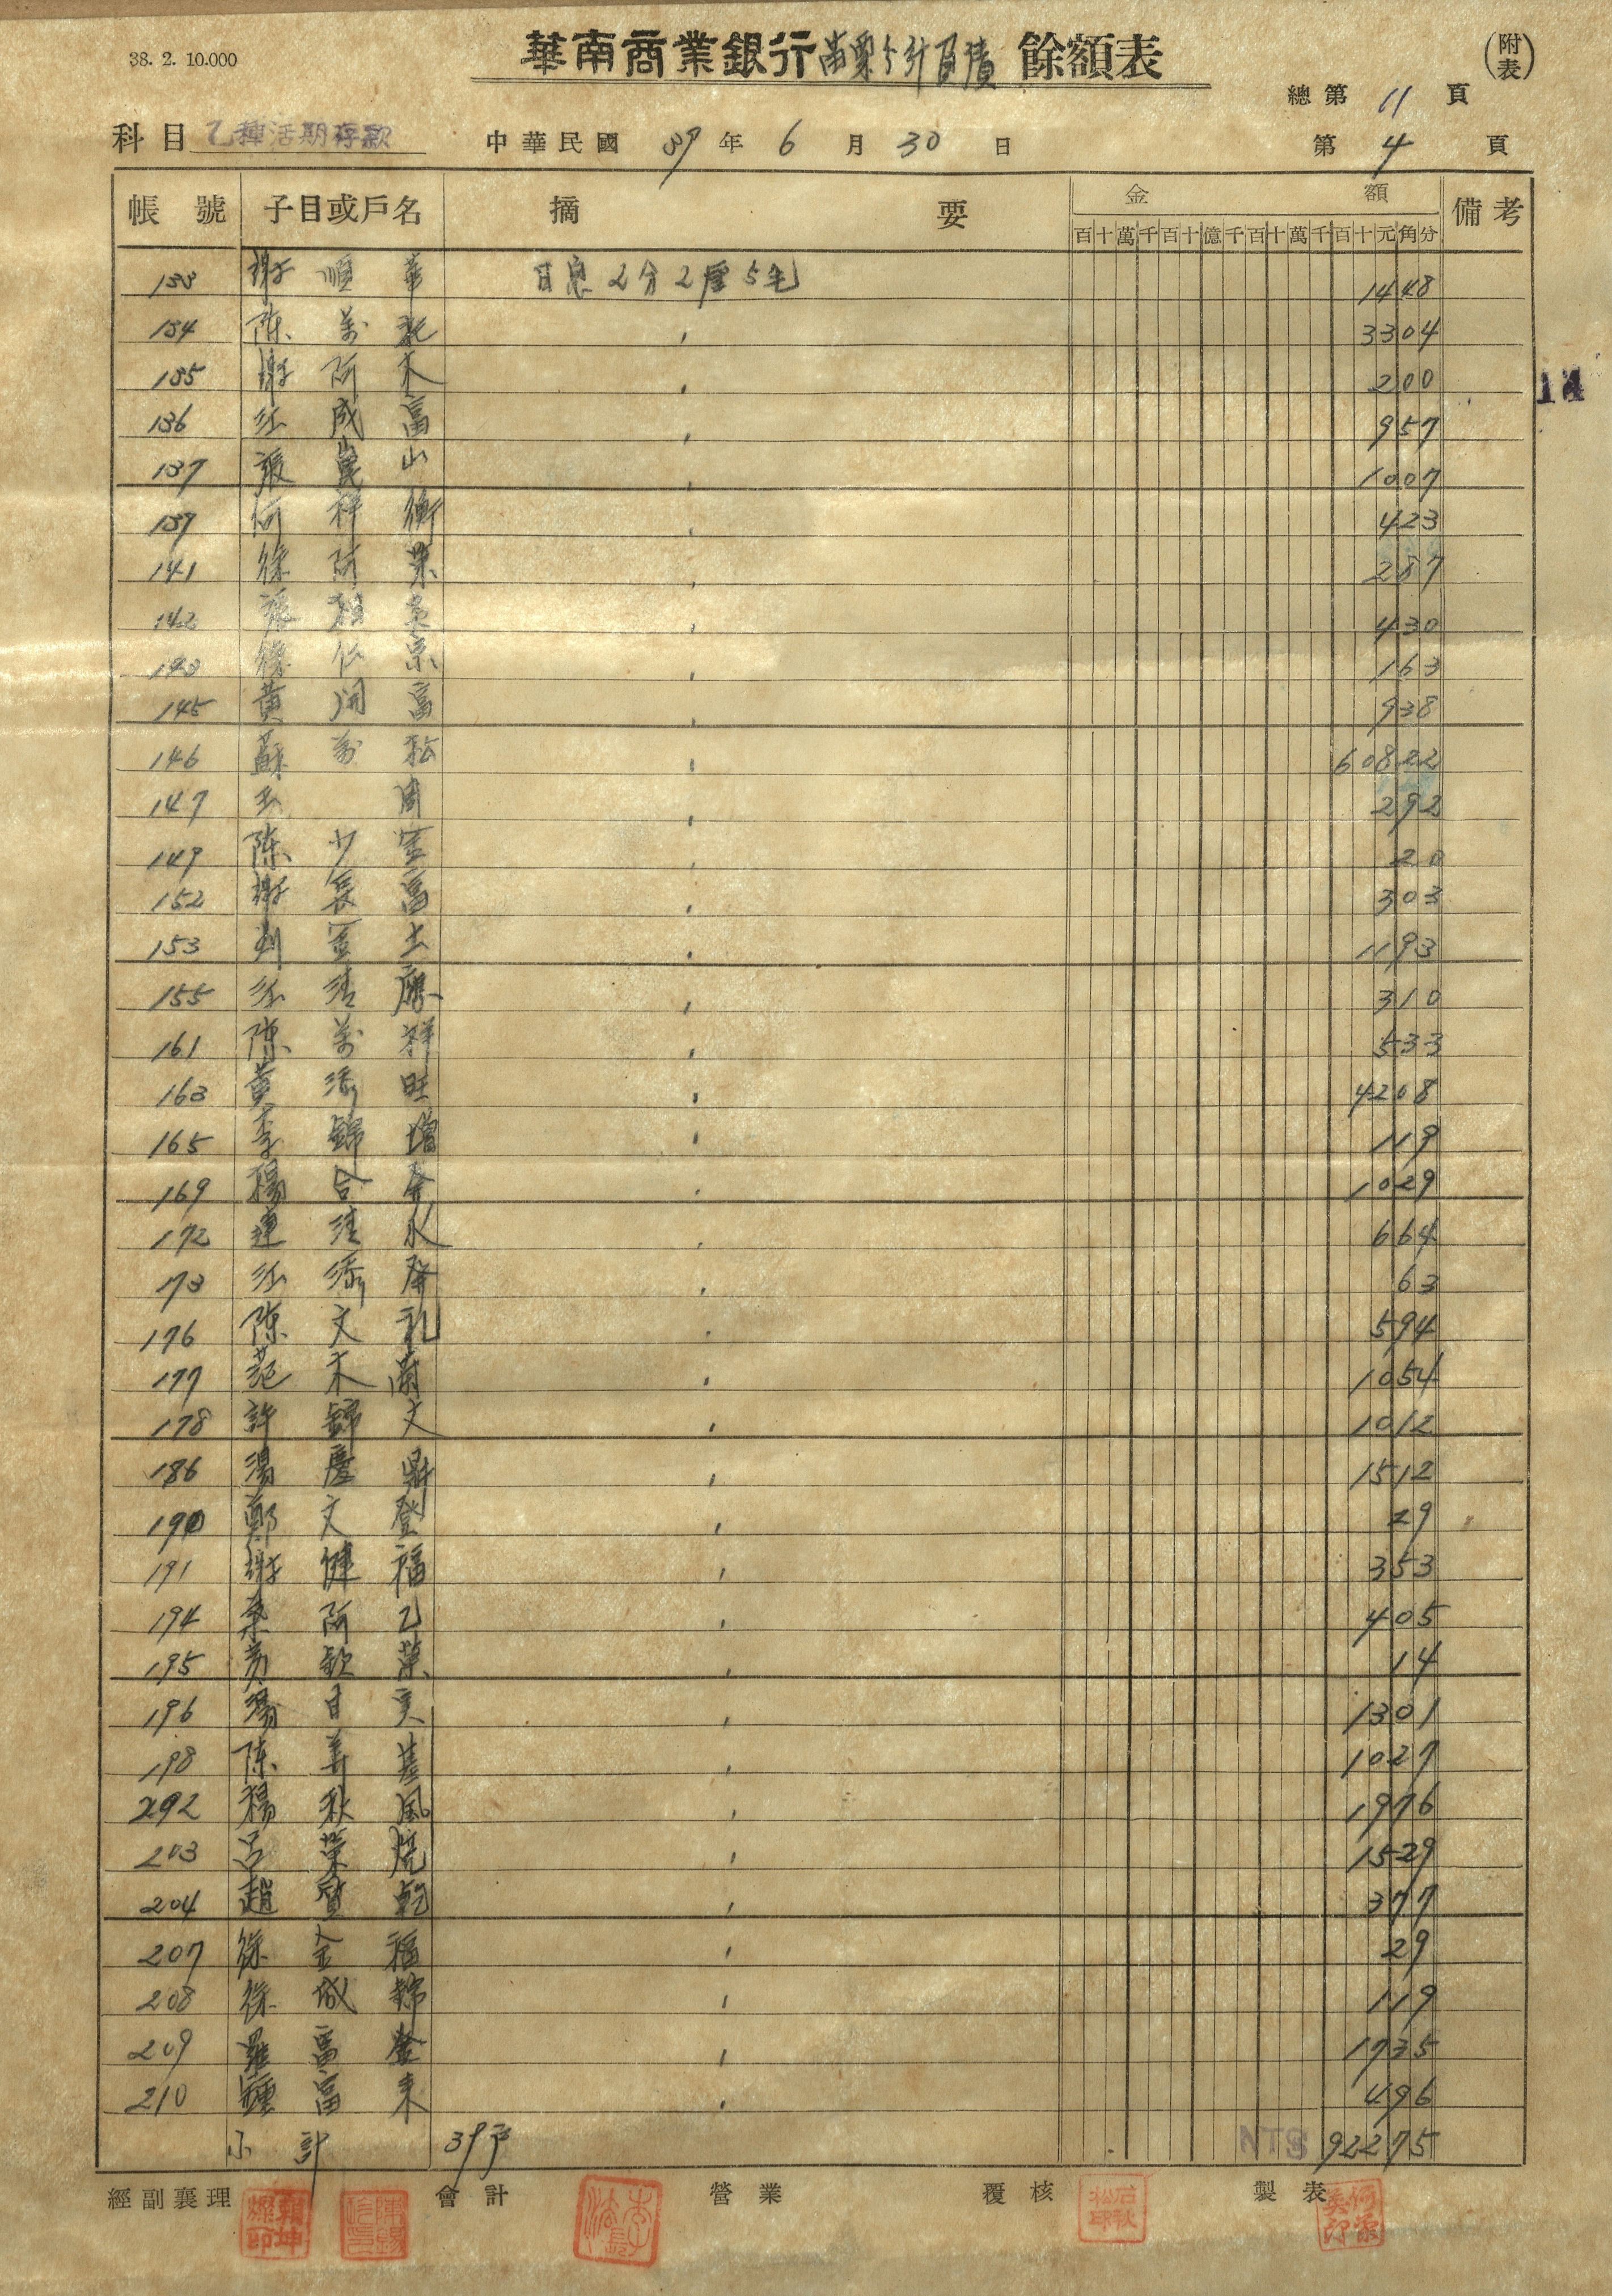 38. 2. 10.000
華南商業銀行苗栗分行負債餘額表
(附表)
總第 11 頁
科目 乙種活期存款 中華民國 39 年 6 月 30 日 第 4 頁
帳號 子目或戶名 摘要 金額 備考
百十萬千百十億千百十萬千百十元角分
133 謝順華 日息2分2厘5毛 1448
134 陳萬 〃 3304
135 謝阿木 〃 200
136 江成富 〃 957
137 張崑山 〃 1007
139 何祥衡 〃 423
141 徐阿榮 〃 287
142 張 〃 430
143 徐仁宗 〃 163
145 黃開富 〃 938
146 蘇萬松 〃 60822
147 王 周 〃 292
149 陳少金 〃 20
152 謝長富 〃 303
153 劉金土 〃 1193
155 江清應 〃 310
161 陳萬祥 〃 533
163 黃添旺 〃 4208
165 李錦增 〃 119
169 楊合發 〃 1029
172 連清水 〃 664
173 江添發 〃 63
176 陳文礼 〃 594
177 范木蘭 〃 1054
178 許錦文 〃 1012
186 湯慶鼎 〃 1512
190 鄭文登 〃 29
191 謝健福 〃 353
194 葉阿乙 〃 405
195 黃欽葉 〃 14
196 湯日 〃 1301
198 陳善基 〃 1027
292 楊秋風 〃 1976
203 呂榮 〃 1529
204 趙質乾 〃 377
207 徐金福 〃 29
208 徐成錦 〃 119
209 羅富登 〃 1735
210 鍾富來 〃 496
小計 39戶 NT$ 92275
經副襄理 會計 營業 覆核 製表
14